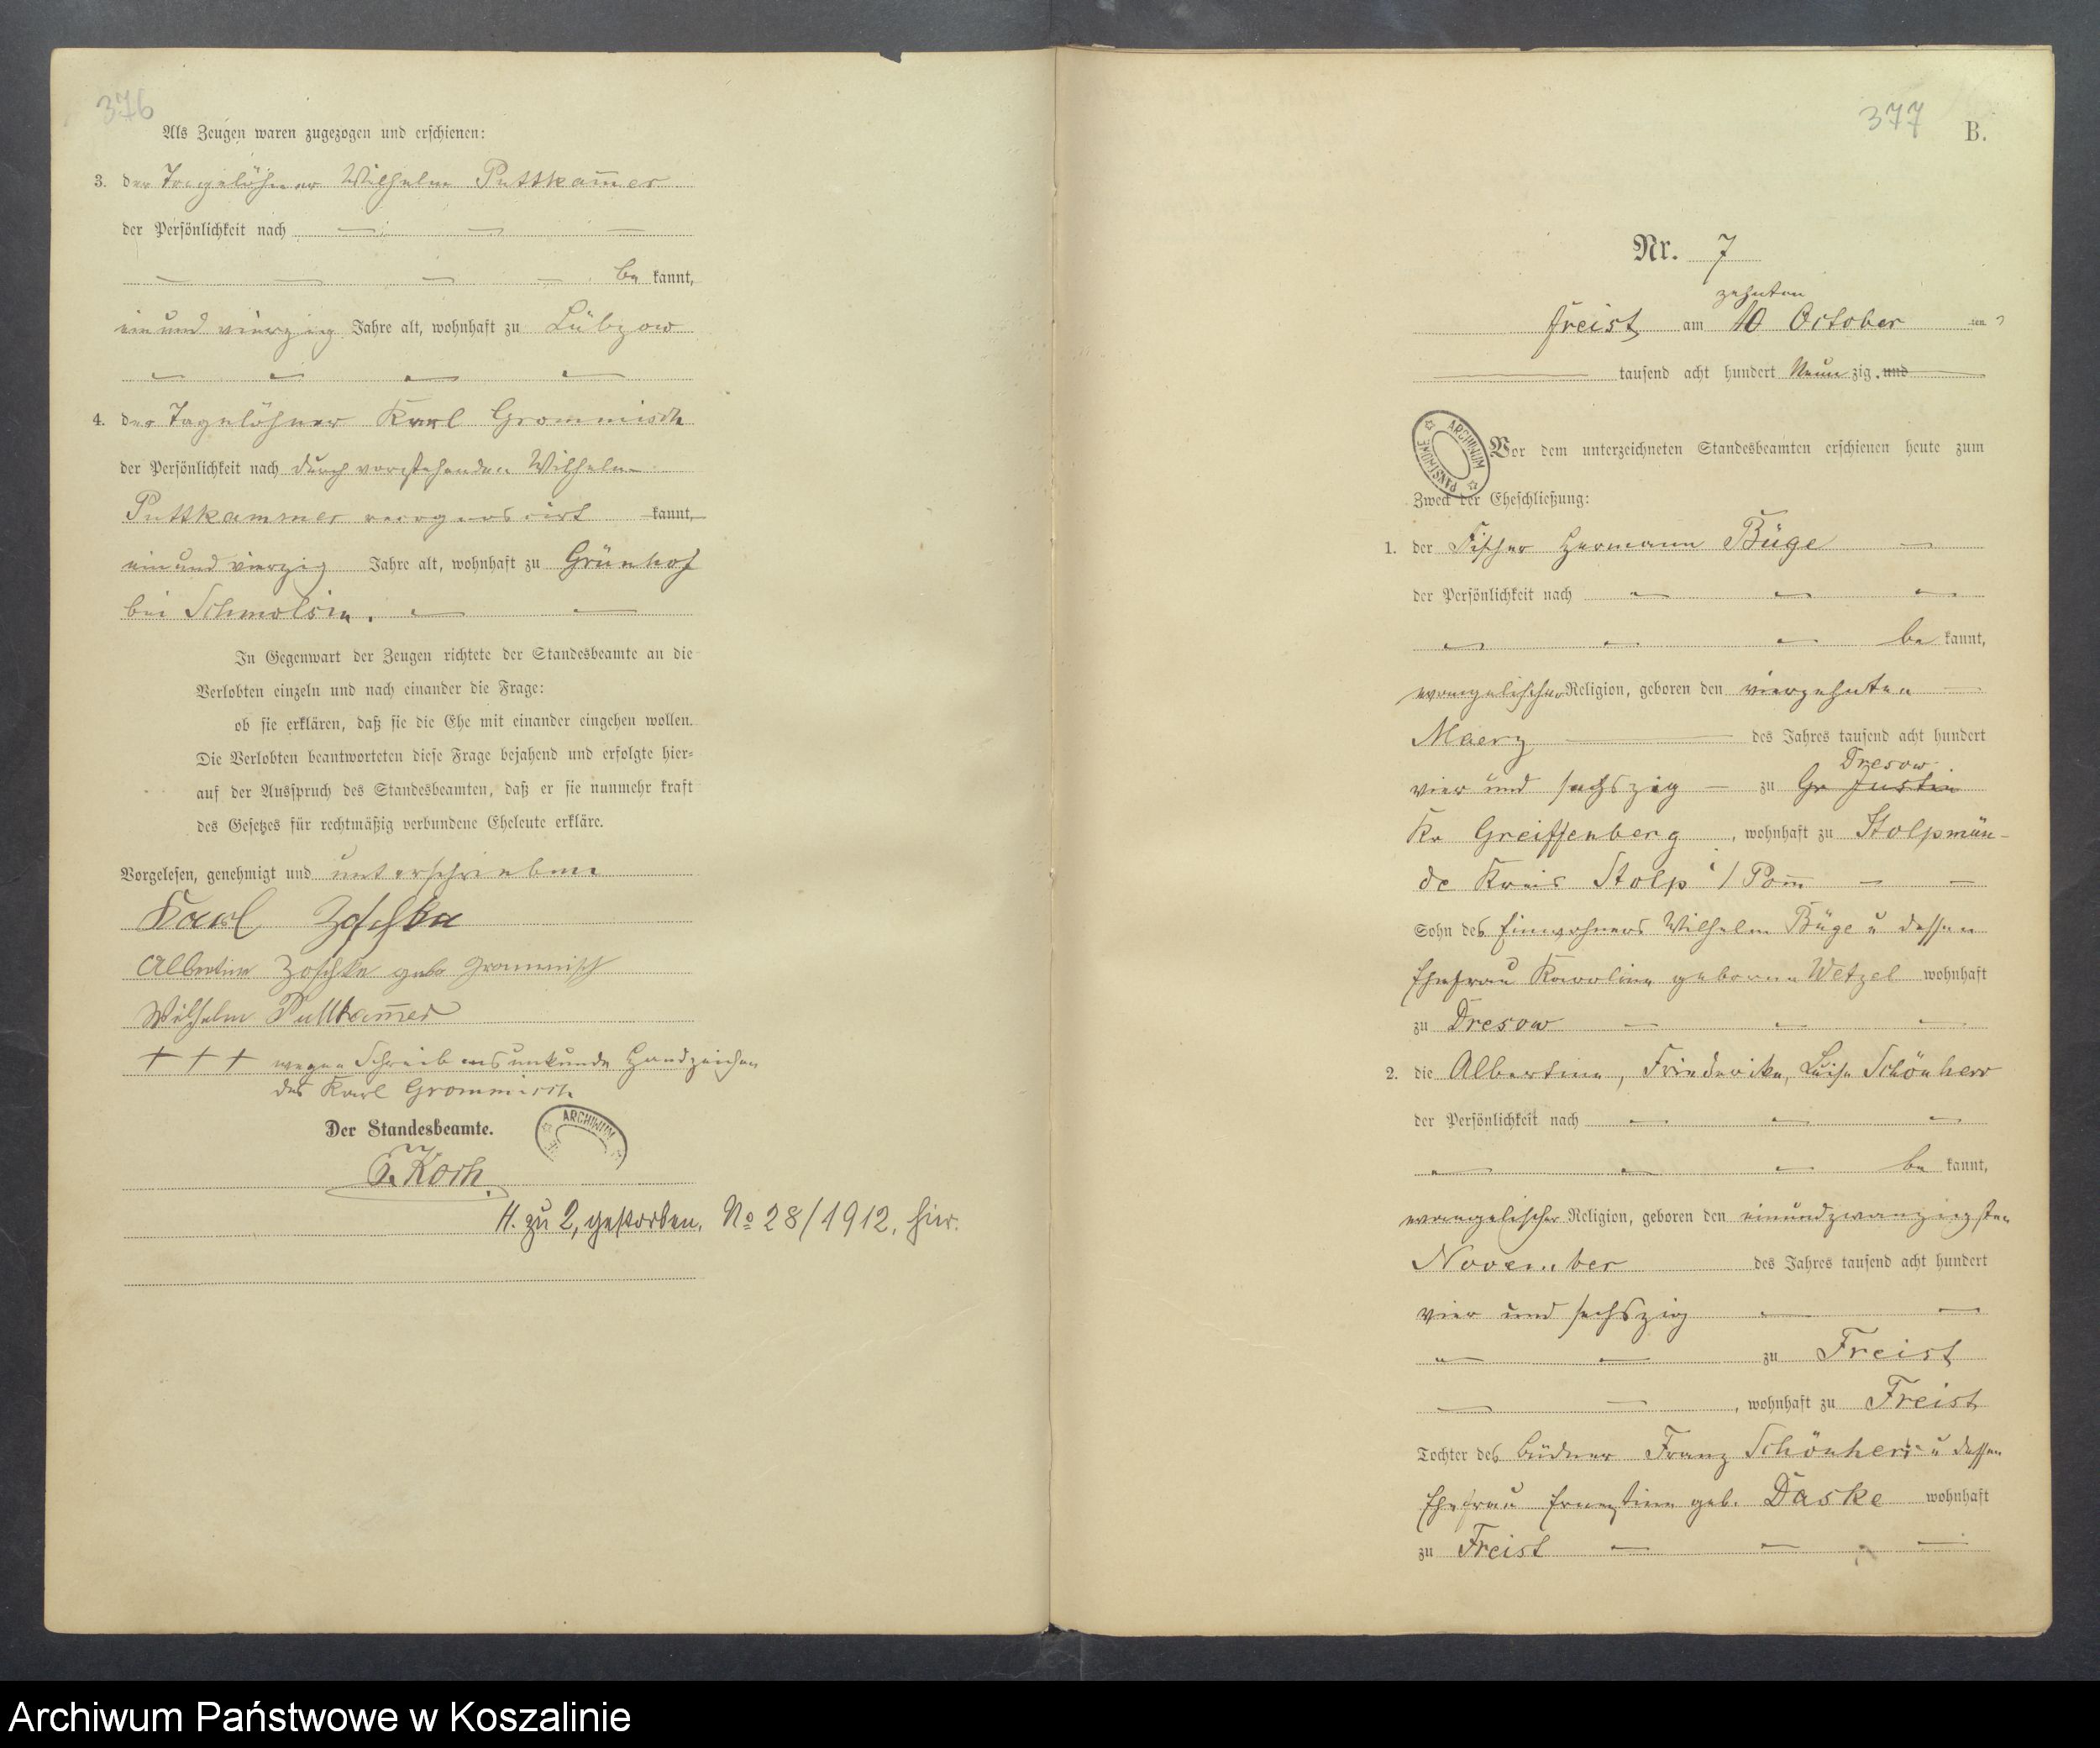 376
Als Zeugen waren zugezogen und erschienen:
3. der Tagelöhner Wilhelm Puttkam̄er
der Persönlichkeit nach — — —
— — — — be kannt,
ein und vierzig Jahre alt, wohnhaft zu Lübzow
— — — —
4. der Tagelöhner Karl Grommisch
der Persönlichkeit nach durch vorstehenden Wilhelm
Puttkammer recognoscirt kannt,
ein und vierzig Jahre alt, wohnhaft zu Grünhof
bei Schmolsin. — —
In Gegenwart der Zeugen richtete der Standesbeamte an die
Verlobten einzeln und nach einander die Frage:
ob sie erklären, daß sie die Ehe mit einander eingehen wollen.
Die Verlobten beantworteten diese Frage bejahend und erfolgte hier-
auf der Ausspruch des Standesbeamten, daß er sie nunmehr kraft
des Gesetzes für rechtmäßig verbundene Eheleute erkläre.
Vorgelesen, genehmigt und unterschrieben
Karl Zoschke
Albertine Zoschke geb. Grommisch
Wilhelm Puttkam̄er
+ + + wegen Schreibensunkunde Handzeichen
des Karl Grommisch
Der Standesbeamte.
ARCHIWUM
Koch.
H. zu 2, gestorben, No 28/1912, hier.
377
B.
Nr. 7
zehnten
Freist am 10 October ten
tausend acht hundert Neun zig und
ARCHIWUM PAŃSTWOWE
Vor dem unterzeichneten Standesbeamten erschienen heute zum
Zweck der Eheschließung:
1. der Fischer Hermann Büge —
der Persönlichkeit nach — — —
— — — be kannt,
evangelischer Religion, geboren den vierzehnten —
Maerz — des Jahres tausend acht hundert
Dresow
vier und sechszig — zu Gr Justin
Kr Greiffenberg, wohnhaft zu Stolpmün-
de Kreis Stolp i/Pom̄ — —
Sohn des Einwohners Wilhelm Büge u dessen
Ehefrau Karoline geborne Wetzel wohnhaft
zu Dresow — — —
2. die Albertine, Friederike, Luise Schönherr
der Persönlichkeit nach — — —
— — — be kannt,
evangelischer Religion, geboren den einundzwanzigsten
November des Jahres tausend acht hundert
vier und sechszig — —
— — zu Freist
— —, wohnhaft zu Freist
Tochter des Büdner Franz Schönherr u dessen
Ehefrau Ernestine geb. Daske wohnhaft
zu Freist — — —
Archiwum Państwowe w Koszalinie